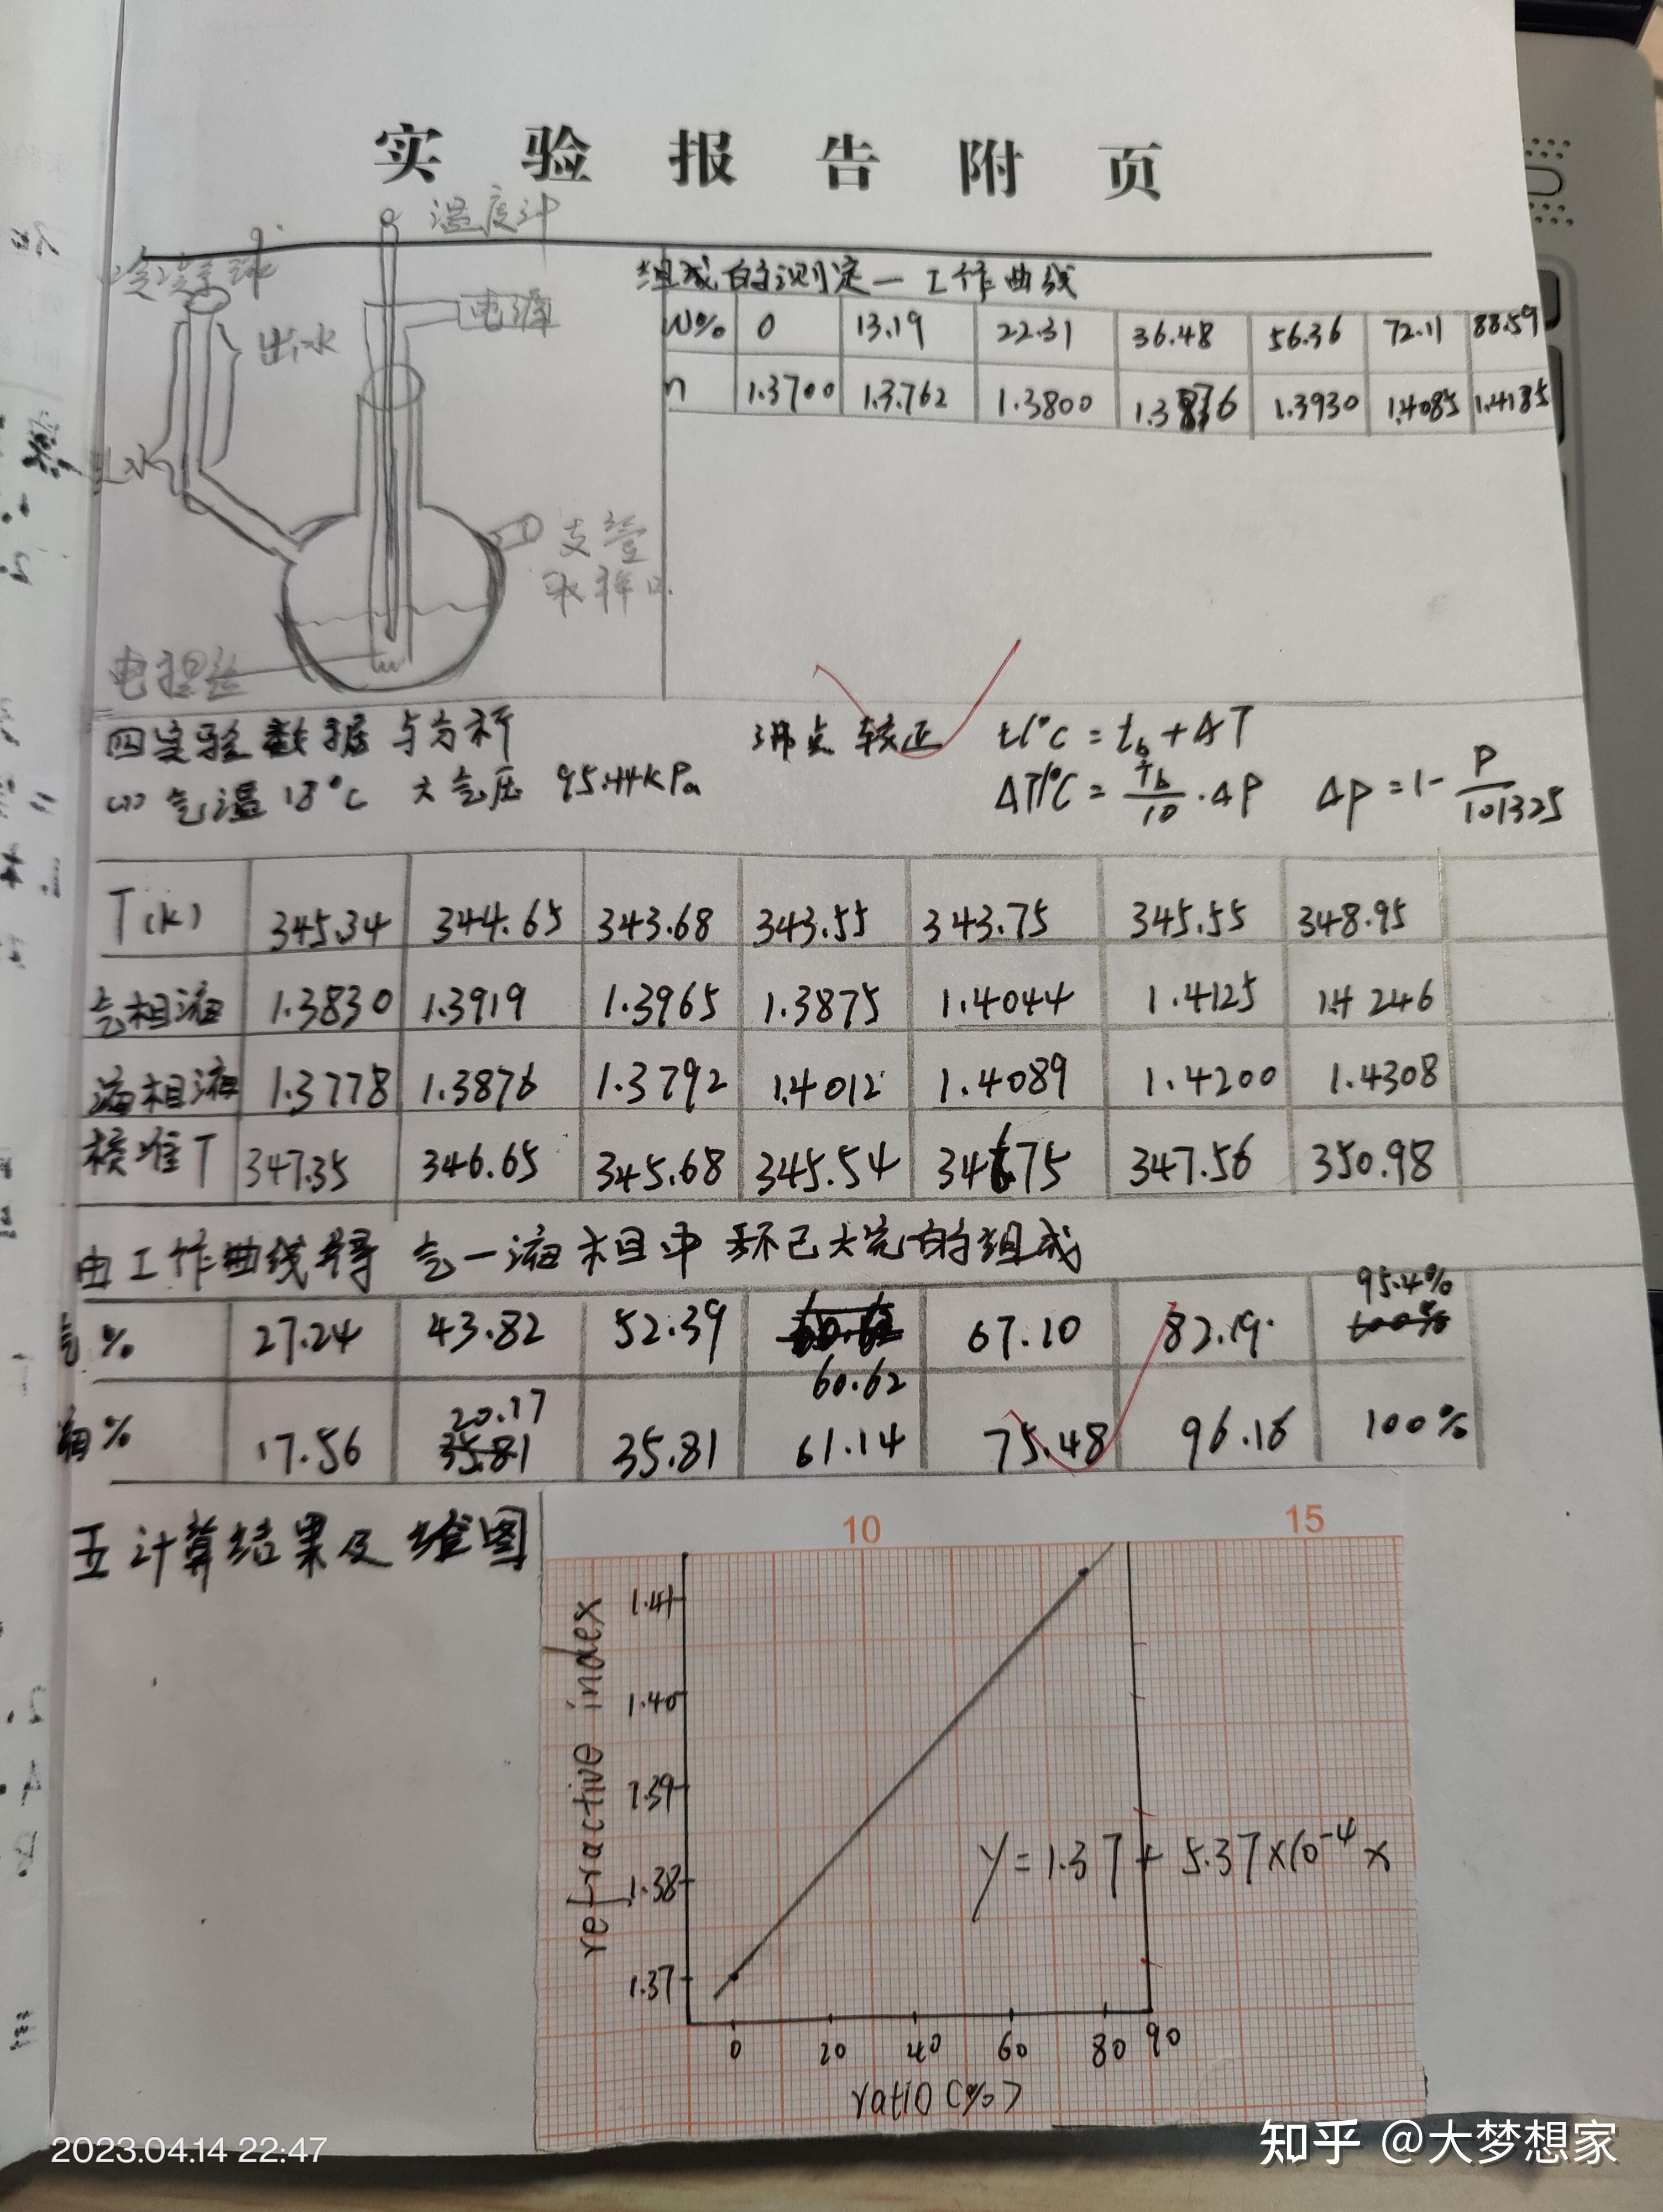 实验报告附页
温度计
冷凝
电源
出水
支管
取样口
电阻丝
组成的测定—工作曲线
W% 0 13.19 22.31 36.48 56.36 72.11 88.59
n 1.3700 1.3762 1.3800 1.3876 1.3930 1.4085 1.4185
四实验数据与分析 沸点较正 t/°C = tb + ΔT
(1) 气温 18°C 大气压 95.44kPa ΔT/°C = Tb/10 · ΔP ΔP = 1 - P/101325
T(K) 345.34 344.65 343.68 343.55 343.75 345.55 348.95
气相液 1.3830 1.3919 1.3965 1.3875 1.4044 1.4125 1.4246
液相液 1.3778 1.3876 1.3792 1.4012 1.4089 1.4200 1.4308
校准T 347.35 346.65 345.68 345.54 346.75 347.56 350.98
由工作曲线得 气—液相中环己烷的组成
气% 27.24 43.82 52.39 60.62 67.10 82.19 95.4%
液% 17.56 20.17 35.81 61.14 75.48 96.16 100%
五计算结果及绘图
10 15
refractive index
1.41
1.40
1.39
1.38
1.37
y = 1.37 + 5.37×10⁻⁴ x
0 20 40 60 80 90
ratio (%)
2023.04.14 22:47
知乎 @大梦想家